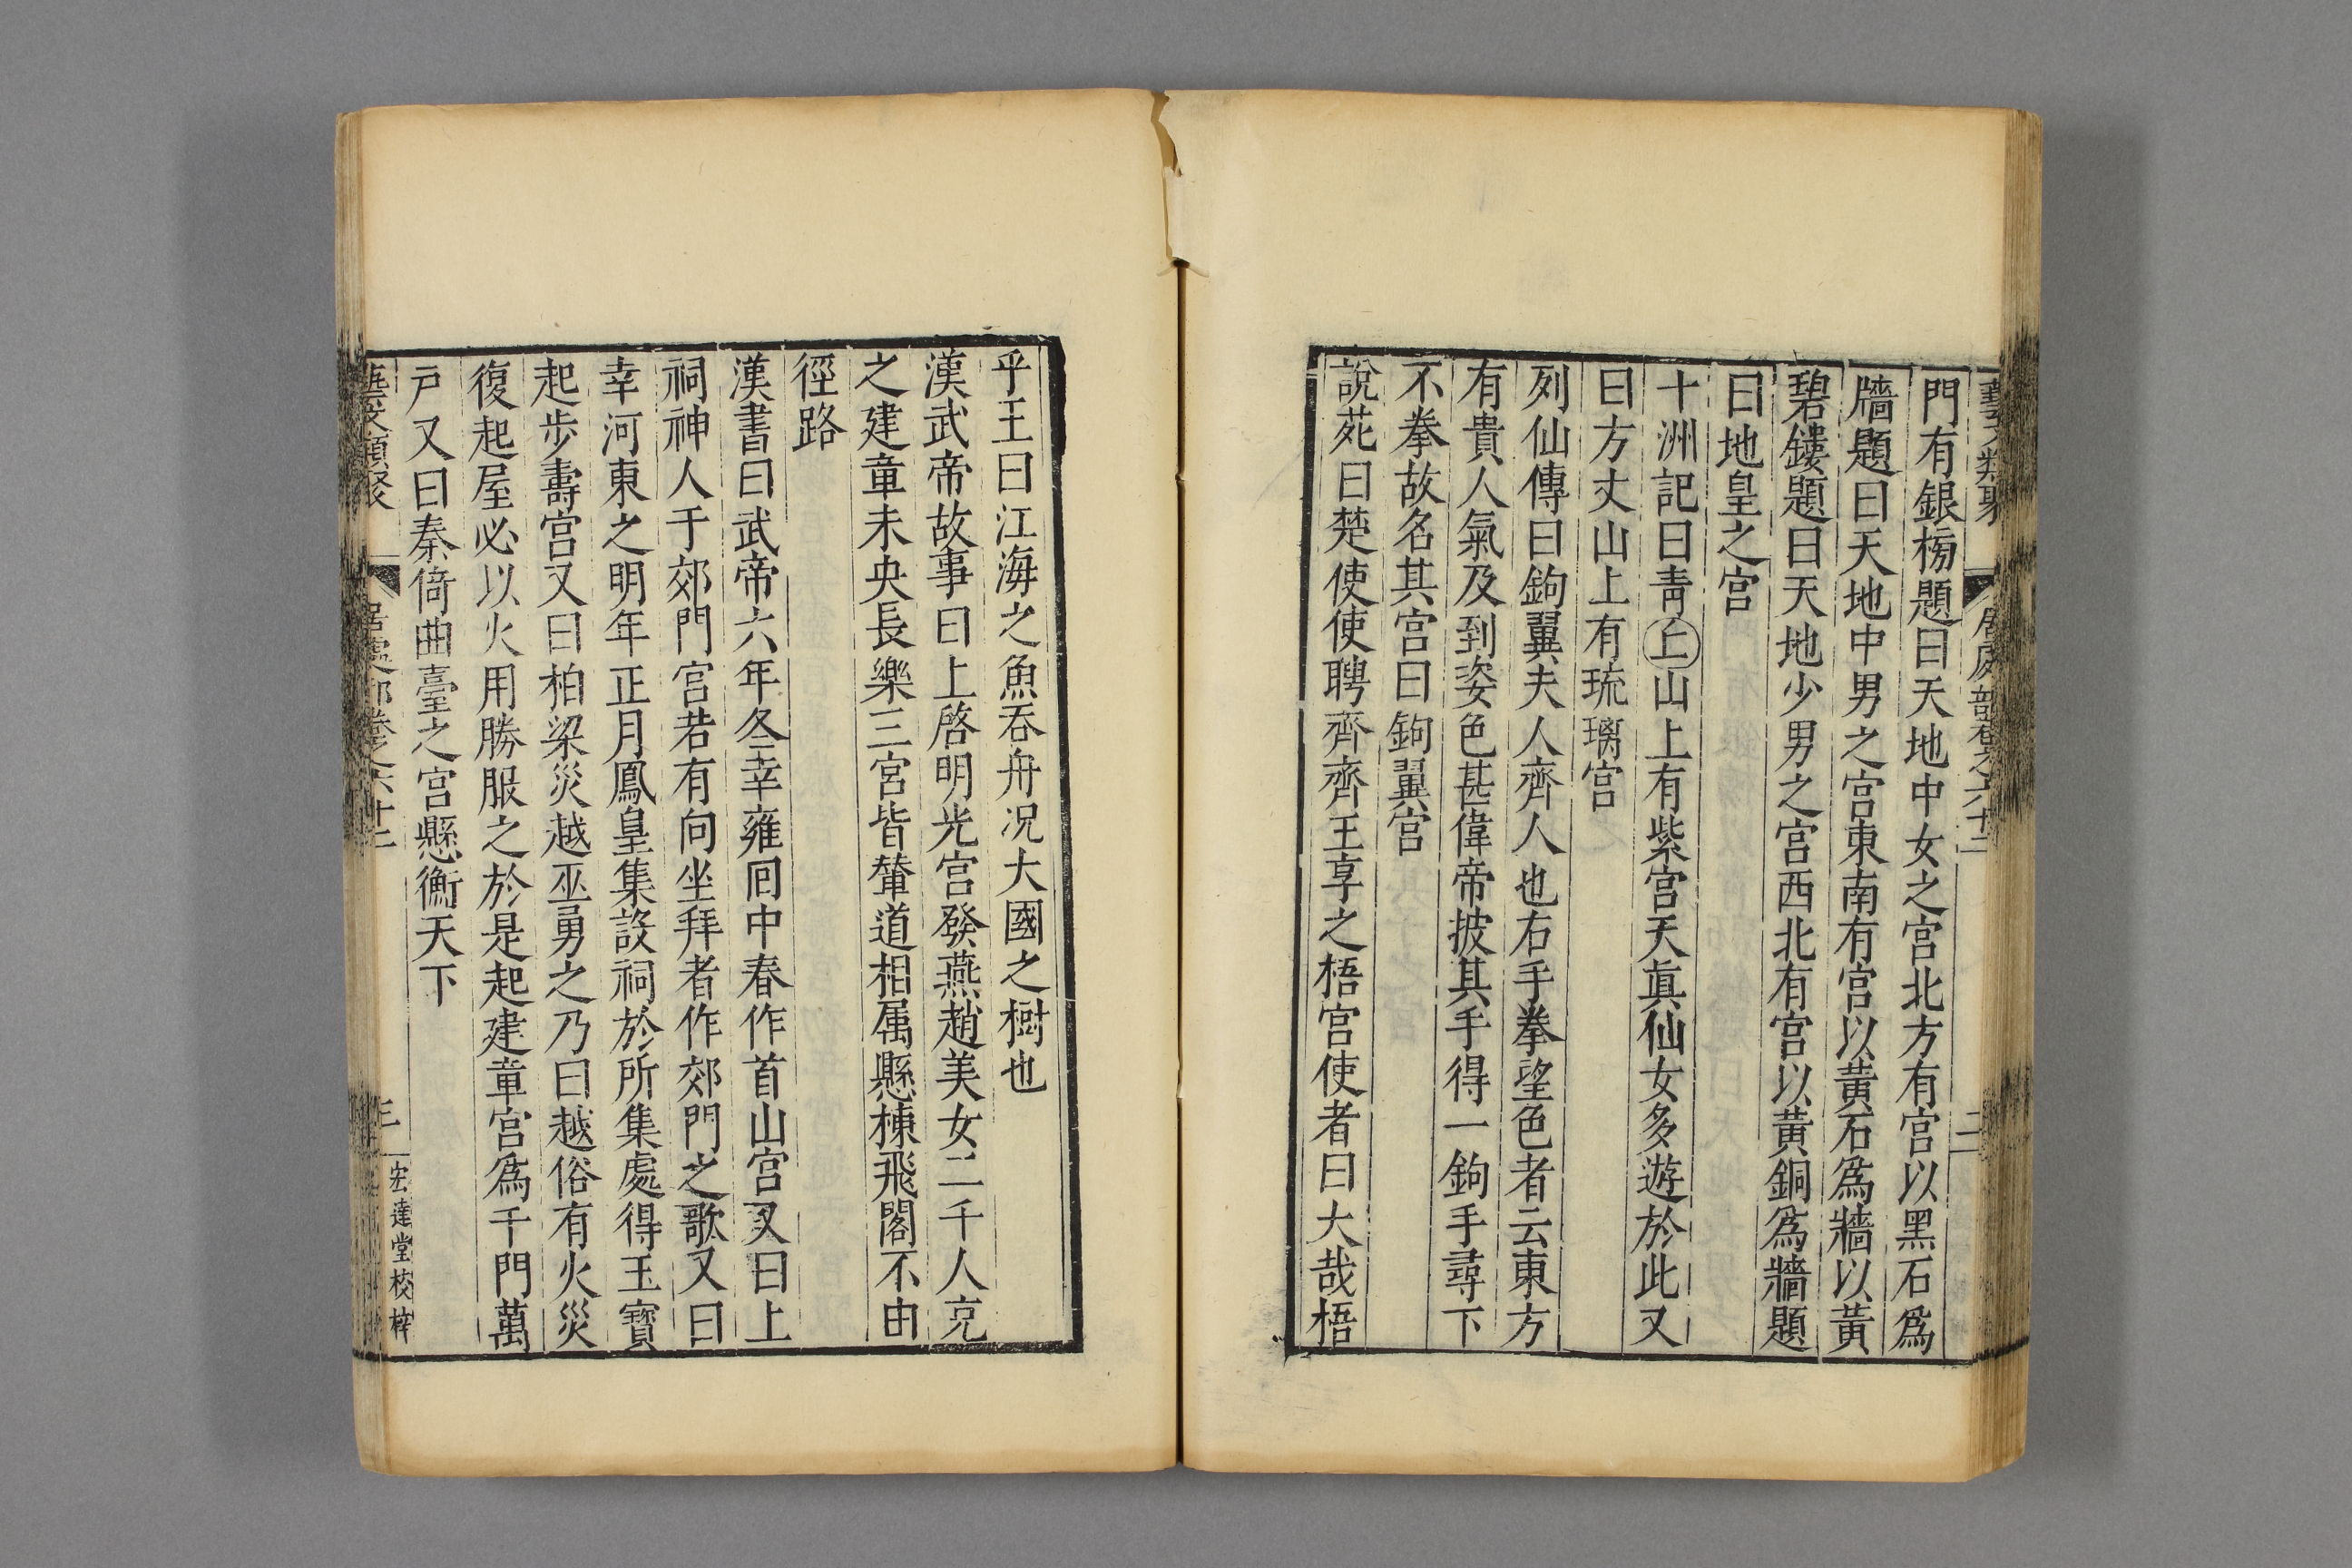 藝文類聚 居處部卷之六十二 二
門有銀榜題曰天地中女之宮北方有宮以黑石爲
牆題曰天地中男之宮東南有宮以黃石爲牆以黃
碧鏤題曰天地少男之宮西北有宮以黃銅爲牆題
曰地皇之宮
十洲記曰青丘山上有紫宮天眞仙女多遊於此又
曰方丈山上有琉璃宮
列仙傳曰鉤翼夫人齊人也右手拳望色者云東方
有貴人氣及到姿色甚偉帝披其手得一鉤手尋下
不拳故名其宮曰鉤翼宮
說苑曰楚使使聘齊齊王享之梧宮使者曰大哉梧
乎王曰江海之魚吞舟况大國之樹也
漢武帝故事曰上啓明光宮發燕趙美女二千人充
之建章未央長樂三宮皆輦道相属懸棟飛閣不由
徑路
漢書曰武帝六年冬幸雍囘中春作首山宮又曰上
祠神人于郊門宮若有向坐拜者作郊門之歌又曰
幸河東之明年正月鳳皇集設祠於所集處得玉寶
起步壽宮又曰柏梁災越巫勇之乃曰越俗有火災
復起屋必以火用勝服之於是起建章宮爲千門萬
戶又曰秦倚曲臺之宮懸衡天下
藝文類聚 居處部卷之六十二 三 宏達堂校梓